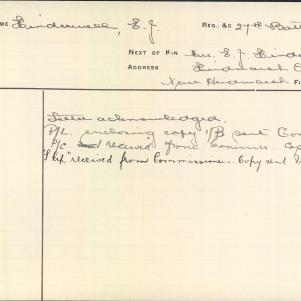 ME Lindswell, E. J. REG. &C 27th Batt
NEXT OF KIN Mrs. E. J. Linds
ADDRESS Hindmarsh
West Hindmarsh Fi
Letter acknowledged.
P/L. enclosing copy 1/B sent Com
P/C received from Commiss. Cop
"Slip" received from Commissioner. Copy sent